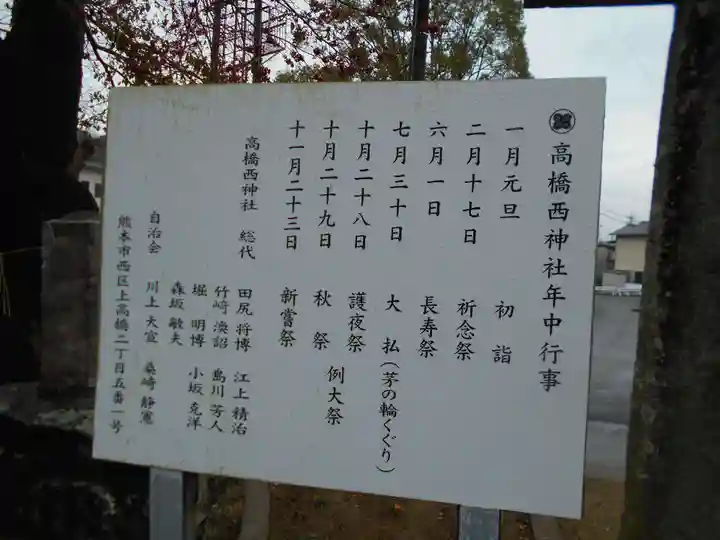 高橋西神社年中行事
一月元旦 初詣
二月十七日 祈念祭
六月一日 長寿祭
七月三十日 大払(茅の輪くぐり)
十月二十八日 護夜祭
十月二十九日 秋祭 例大祭
十一月二十三日 新嘗祭
高橋西神社 総代 田尻将博 江上精治
竹崎 渙詔 島川芳人
堀明博 小坂克洋
森坂敏夫
自治会 川上大宣 桑崎静憲
熊本市西区上高橋二丁目五番一号